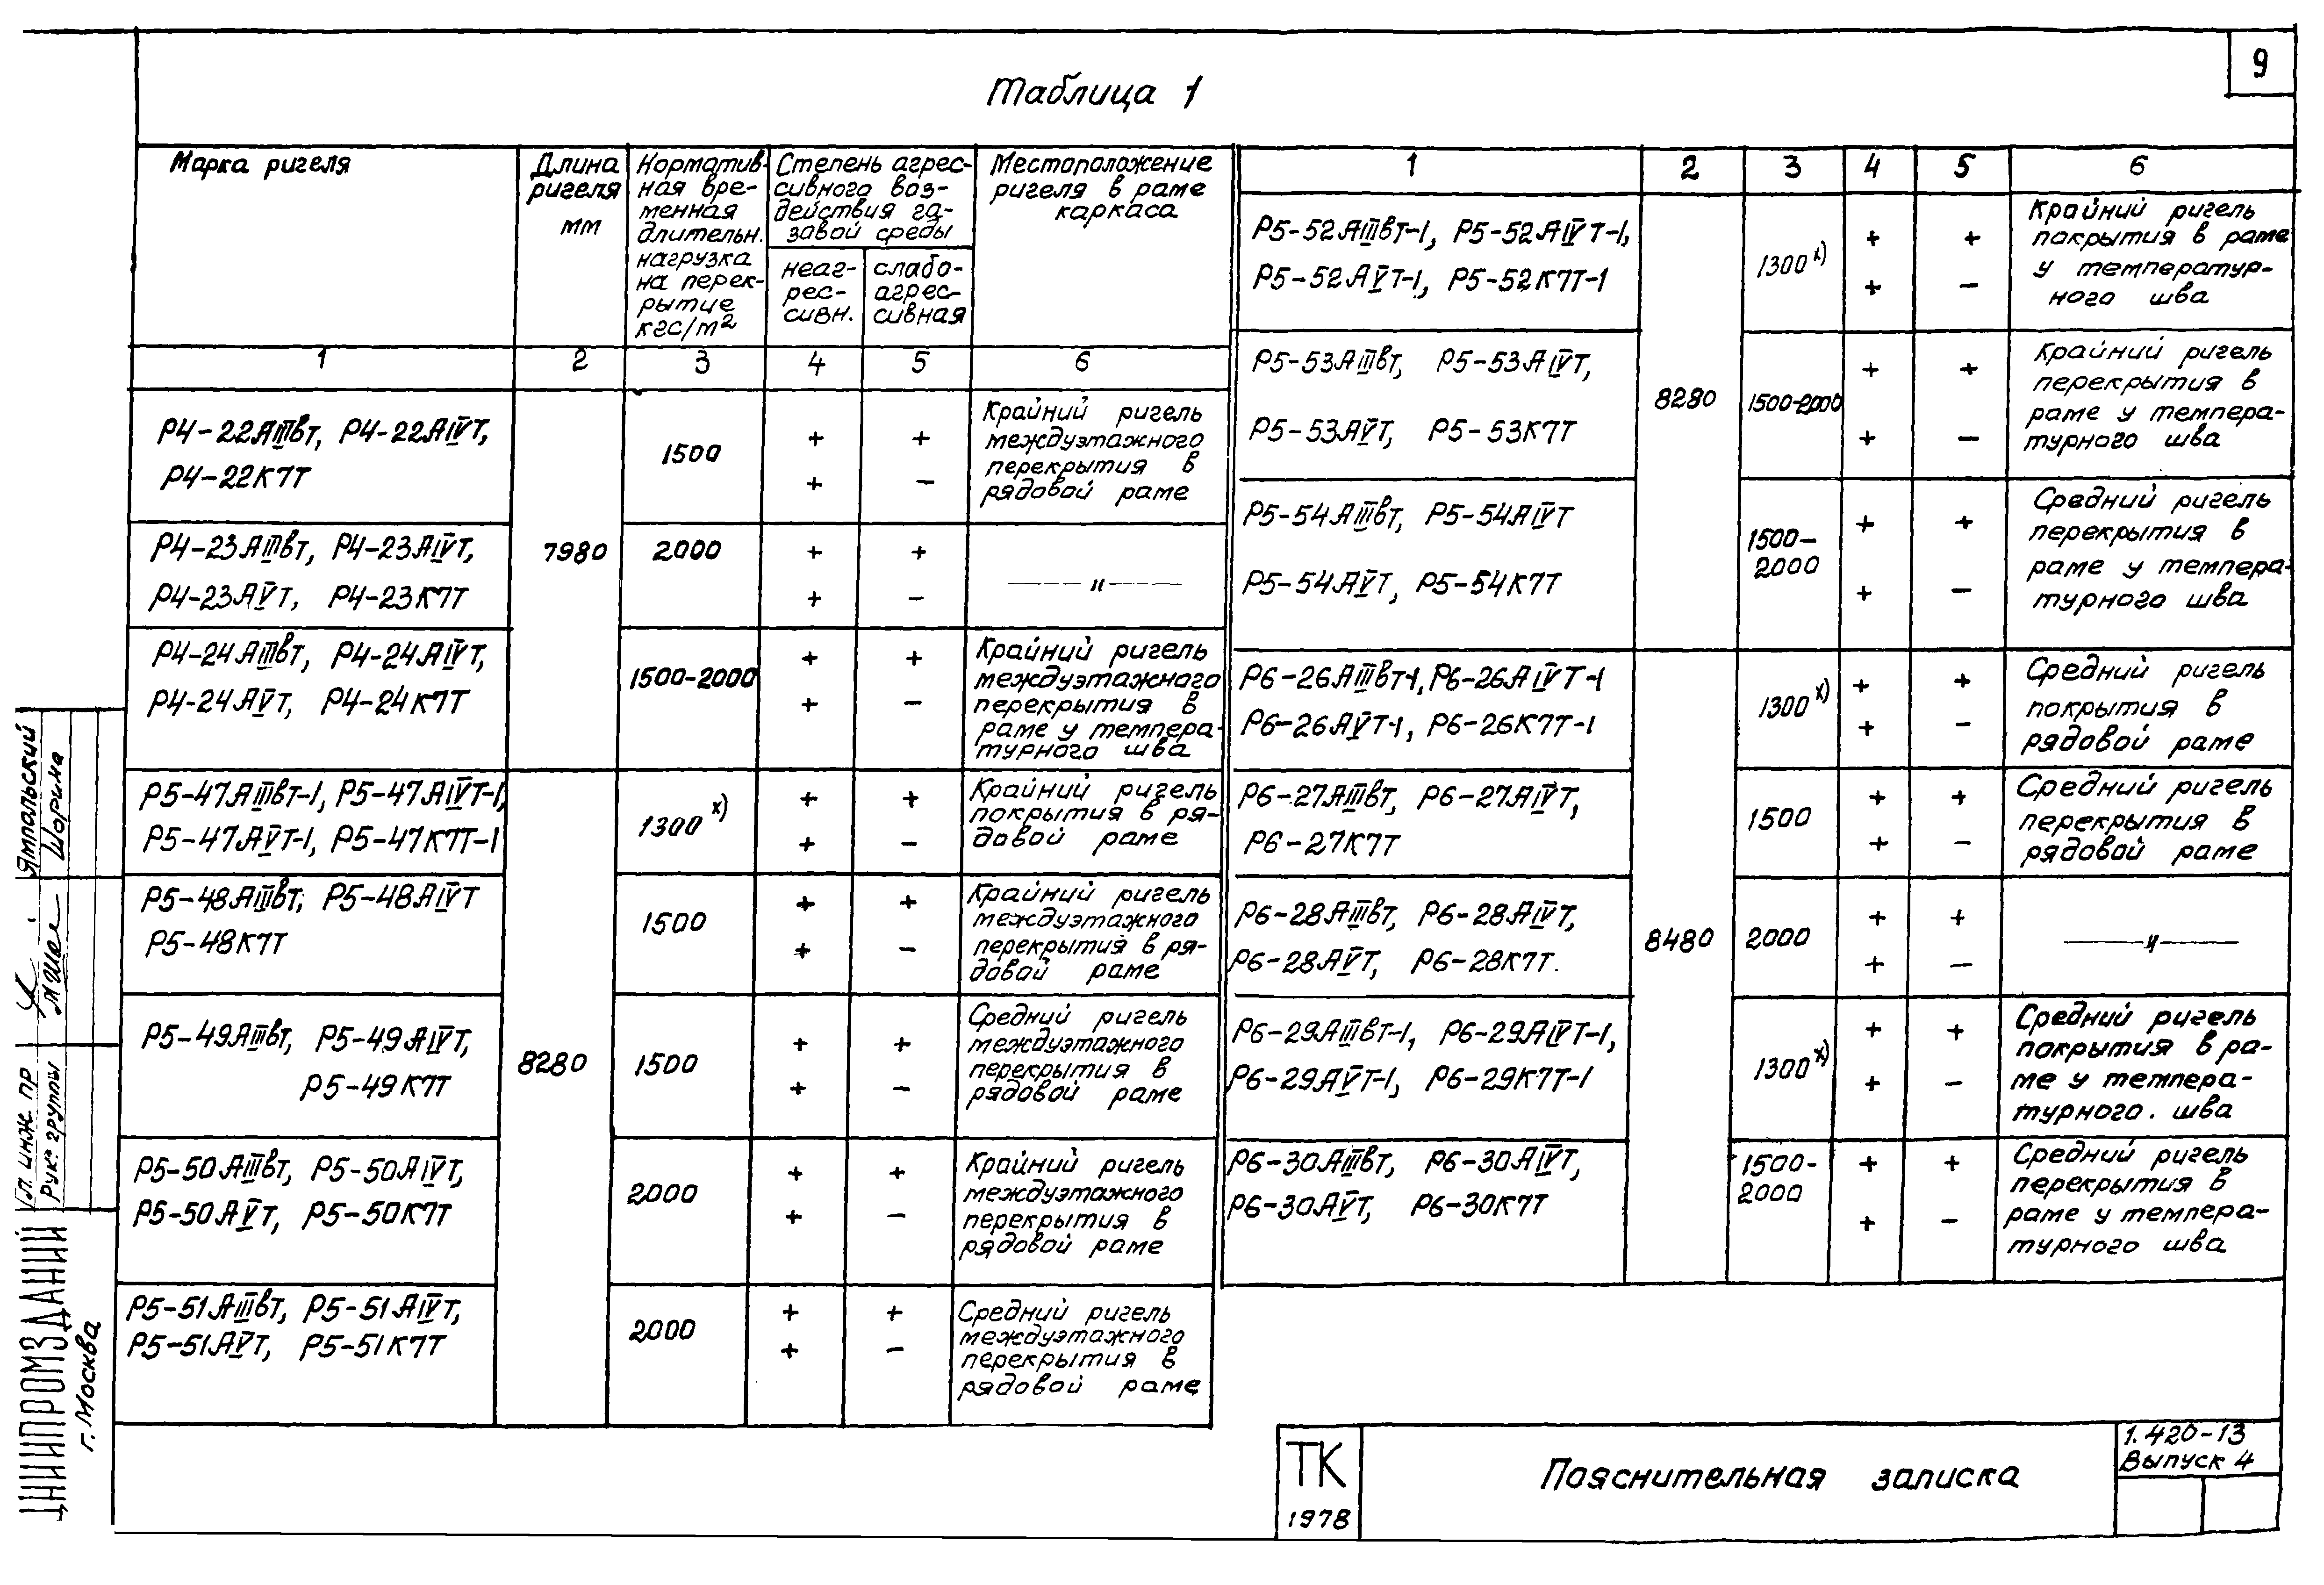 9
Таблица 1
Марка ригеля
Длина
ригеля
мм
Норматив-
ная вре-
менная
длительн.
нагрузка
на перек-
рытие
кгс/м²
Степень агрес-
сивного воз-
действия га-
зовой среды
неаг-
рес-
сивн.
слабо-
агрес-
сивная
Местоположение
ригеля в раме
каркаса
1 2 3 4 5 6
Р4-22АIIIвт, Р4-22АIVТ,
Р4-22К7Т
1500
+ +
+ −
Крайний ригель
междуэтажного
перекрытия в
рядовой раме
Р4-23АIIIвт, Р4-23АIVТ,
Р4-23АVТ, Р4-23К7Т
7980
2000
+ +
+ −
—— " ——
Р4-24АIIIвт, Р4-24АIVТ,
Р4-24АVТ, Р4-24К7Т
1500-2000
+ +
+ −
Крайний ригель
междуэтажного
перекрытия в
раме у темпера-
турного шва
Р5-47АIIIвт-1, Р5-47АIVТ-1,
Р5-47АVТ-1, Р5-47К7Т-1
1300х)
+ +
+ −
Крайний ригель
покрытия в ря-
довой раме
Р5-48АIIIвт, Р5-48АIVТ
Р5-48К7Т
1500
+ +
+ −
Крайний ригель
междуэтажного
перекрытия в ря-
довой раме
Р5-49АIIIвт, Р5-49АIVТ,
Р5-49К7Т
8280
1500
+ +
+ −
Средний ригель
междуэтажного
перекрытия в
рядовой раме
Р5-50АIIIвт, Р5-50АIVТ,
Р5-50АVТ, Р5-50К7Т
2000
+ +
+ −
Крайний ригель
междуэтажного
перекрытия в
рядовой раме
Р5-51АIIIвт, Р5-51АIVТ,
Р5-51АVТ, Р5-51К7Т
2000
+ +
+ −
Средний ригель
междуэтажного
перекрытия в
рядовой раме
1 2 3 4 5 6
Р5-52АIIIвт-1, Р5-52АIVТ-1,
Р5-52АVТ-1, Р5-52К7Т-1
1300х)
+ +
+ −
Крайний ригель
покрытия в раме
у температур-
ного шва
Р5-53АIIIвт, Р5-53АIVТ,
Р5-53АVТ, Р5-53К7Т
8280
1500-2000
+ +
+ −
Крайний ригель
перекрытия в
раме у темпера-
турного шва
Р5-54АIIIвт, Р5-54АIVТ
Р5-54АVТ, Р5-54К7Т
1500-
2000
+ +
+ −
Средний ригель
перекрытия в
раме у темпера-
турного шва
Р6-26АIIIвт-1, Р6-26АIVТ-1
Р6-26АVТ-1, Р6-26К7Т-1
1300х)
+ +
+ −
Средний ригель
покрытия в
рядовой раме
Р6-27АIIIвт, Р6-27АIVТ,
Р6-27К7Т
1500
+ +
+ −
Средний ригель
перекрытия в
рядовой раме
Р6-28АIIIвт, Р6-28АIVТ,
Р6-28АVТ, Р6-28К7Т.
8480
2000
+ +
+ −
—— " ——
Р6-29АIIIвт-1, Р6-29АIVТ-1,
Р6-29АVТ-1, Р6-29К7Т-1
1300х)
+ +
+ −
Средний ригель
покрытия в ра-
ме у темпера-
турного. шва
Р6-30АIIIвт, Р6-30АIVТ,
Р6-30АVТ, Р6-30К7Т
1500-
2000
+ +
+ −
Средний ригель
перекрытия в
раме у темпера-
турного шва
ЦНИИПРОМЗДАНИЙ
г. Москва
Гл. инж. пр Ямпальский
Рук. группы Шорина
ТК
1978
Пояснительная записка
1.420-13
Выпуск 4